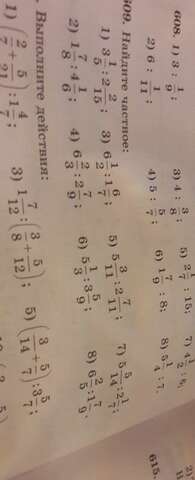 608. 1) 3 : 1/9; 3) 4 : 3/8; 5) 2 1/7 : 15; 7) 4 1/2 : 6;
2) 6 : 1/11; 4) 5 : 5/7; 6) 1 7/9 : 8; 8) 5 1/4 : 7.
609. Найдите частное:
1) 3 1/5 : 2 2/15; 3) 6 1/2 : 1 6/7; 5) 5 3/11 : 2 7/11; 7) 5 5/14 : 2 1/7;
2) 1 7/8 : 4 1/6; 4) 6 2/3 : 2 7/9; 6) 5 1/3 : 3 5/9; 8) 6 2/5 : 1 1/9.
Выполните действия:
1) (2/7 + 5/21) : 1 4/7; 3) 1 7/12 : (3/8 + 5/12); 5) (3/14 + 5/7) : 3 5/7;
615.